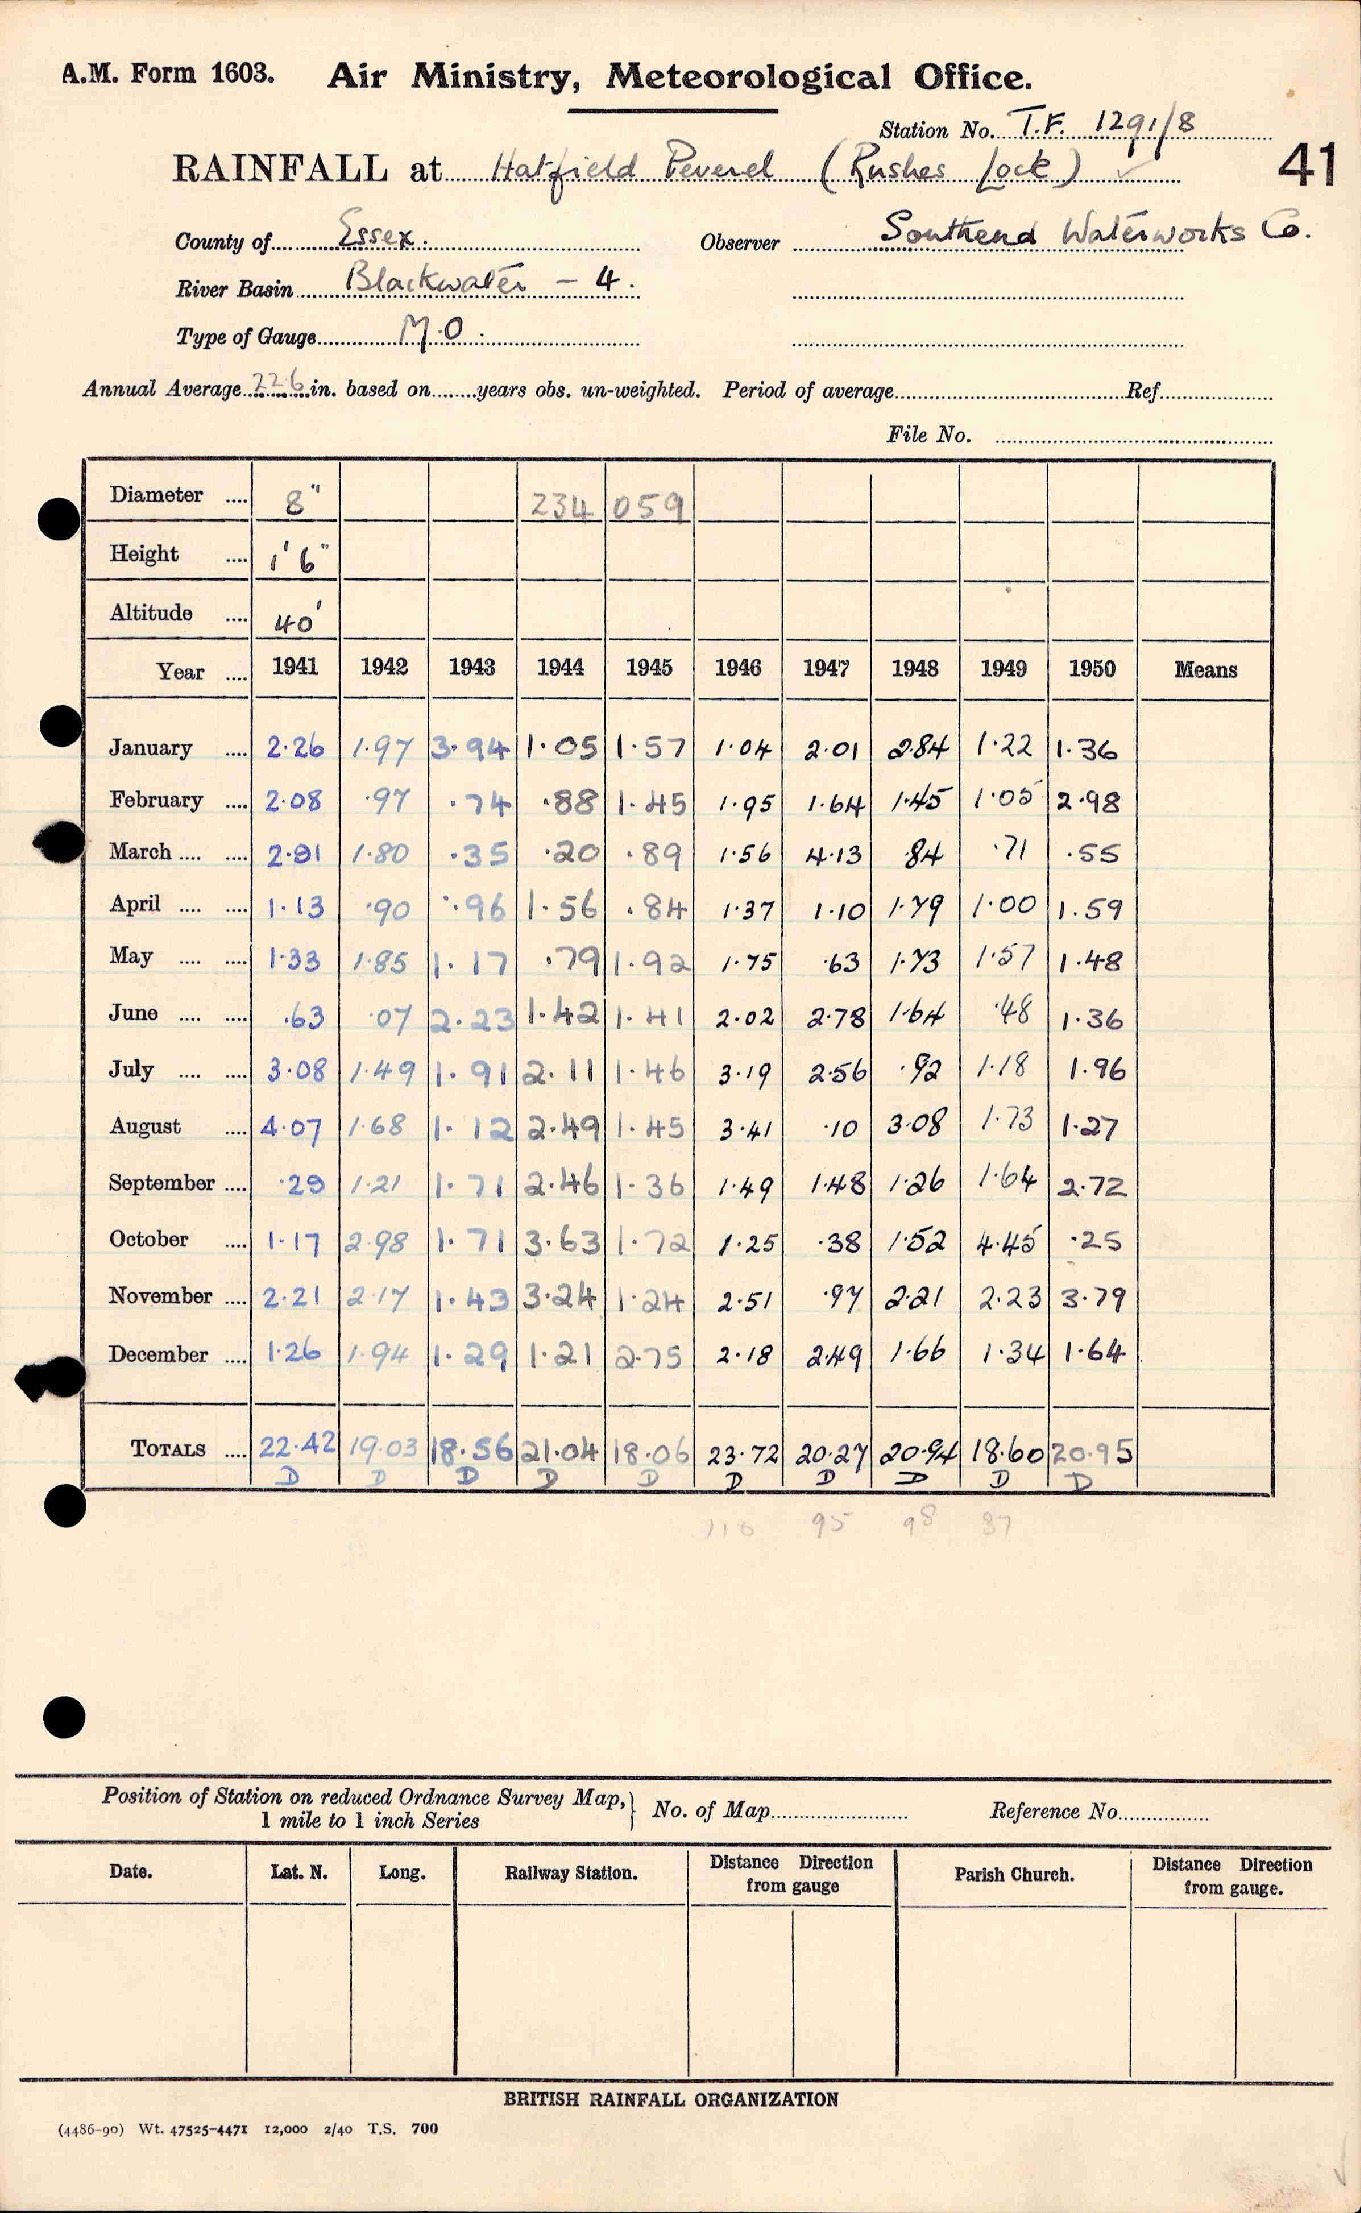 A.M. Form 1603. Air Ministry, Meteorological Office.
Station No. T.F. 1291/8
41
RAINFALL at Hatfield Peverel (Rushes Lock) ✓
County of Essex. Observer Southend Waterworks Co.
River Basin Blackwater - 4.
Type of Gauge M.O.
Annual Average 22.6 in. based on years obs. un-weighted. Period of average Ref.
File No.
Diameter .... 8" 234 059
Height .... 1'6"
Altitude .... 40'
Year .... 1941 1942 1943 1944 1945 1946 1947 1948 1949 1950 Means
January .... 2.26 1.97 3.94 1.05 1.57 1.04 2.01 2.84 1.22 1.36
February .... 2.08 .97 .74 .88 1.45 1.95 1.64 1.45 1.05 2.98
March .... .... 2.91 1.80 .35 .20 .89 1.56 4.13 .84 .71 .55
April .... .... 1.13 .90 .96 1.56 .84 1.37 1.10 1.79 1.00 1.59
May .... .... 1.33 1.85 1.17 .79 1.92 1.75 .63 1.73 1.57 1.48
June .... .... .63 .07 2.23 1.42 1.41 2.02 2.78 1.64 .48 1.36
July .... .... 3.08 1.49 1.91 2.11 1.46 3.19 2.56 .92 1.18 1.96
August .... 4.07 1.68 1.12 2.49 1.45 3.41 .10 3.08 1.73 1.27
September .... .29 1.21 1.71 2.46 1.36 1.49 1.48 1.26 1.64 2.72
October .... 1.17 2.98 1.71 3.63 1.72 1.25 .38 1.52 4.45 .25
November .... 2.21 2.17 1.43 3.24 1.24 2.51 .97 2.21 2.23 3.79
December .... 1.26 1.94 1.29 1.21 2.75 2.18 2.49 1.66 1.34 1.64
TOTALS .... 22.42 19.03 18.56 21.04 18.06 23.72 20.27 20.94 18.60 20.95
D D D D D D D D D D
95 98 87
Position of Station on reduced Ordnance Survey Map, No. of Map Reference No.
1 mile to 1 inch Series
Date. Lat. N. Long. Railway Station. Distance Direction from gauge Parish Church. Distance Direction from gauge.
BRITISH RAINFALL ORGANIZATION
(4486-90) Wt. 47525-4471 12,000 2/40 T.S. 700